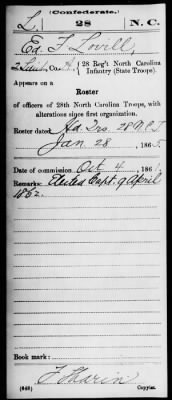 (Confederate.)
L. 28 N. C.
Ed. F Lovill
2 Lieut, Co. A, 28 Reg't North Carolina
Infantry (State Troops).
Appears on a
Roster
of officers of 28th North Carolina Troops, with
alterations since first organization.
Roster dated Hd. Qrs. 28 N.C.T.
Jan. 28, 1865.
Date of commission Oct 4, 186
Remarks: Elected Capt. 9 April
1862.
Book mark:
(648) Copyist.